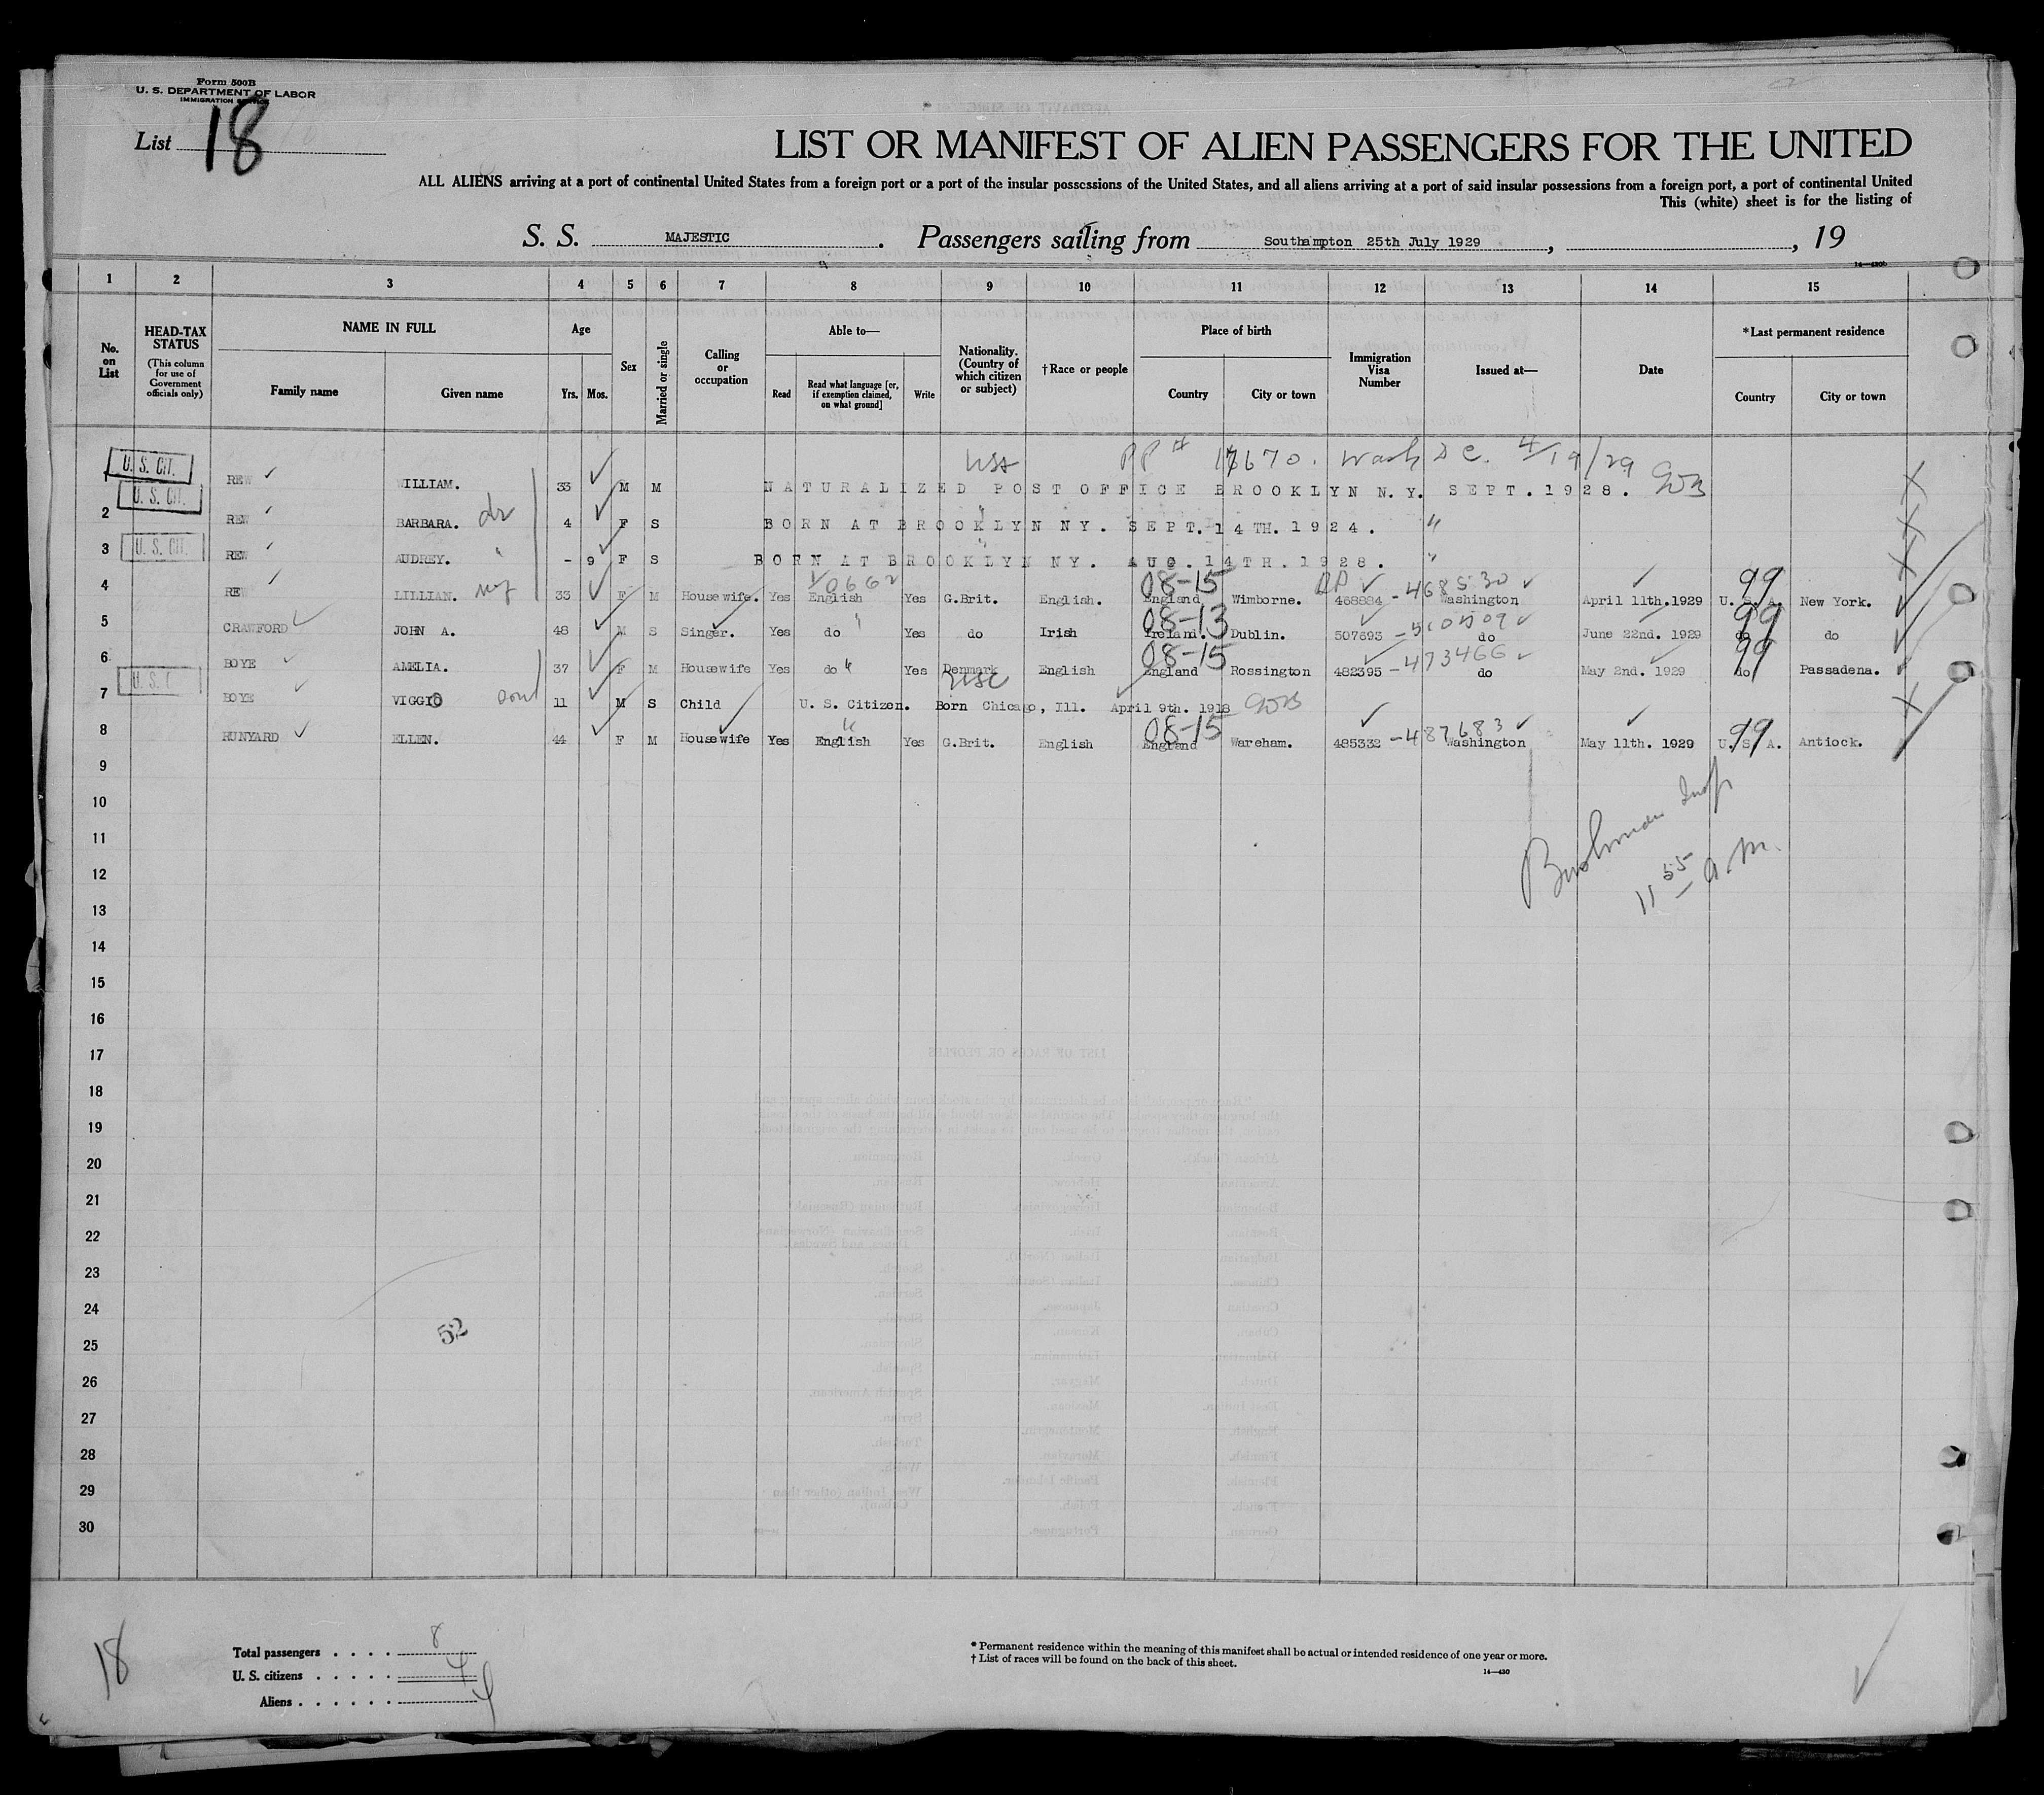 Form 500B
U. S. DEPARTMENT OF LABOR
IMMIGRATION SERVICE
List 18
LIST OR MANIFEST OF ALIEN PASSENGERS FOR THE UNITED
ALL ALIENS arriving at a port of continental United States from a foreign port or a port of the insular possessions of the United States, and all aliens arriving at a port of said insular possessions from a foreign port, a port of continental United
This (white) sheet is for the listing of
S. S. MAJESTIC. Passengers sailing from Southampton 25th July 1929, , 19
14—430b
1 2 3 4 5 6 7 8 9 10 11 12 13 14 15
No. on List
HEAD-TAX STATUS (This column for use of Government officials only)
NAME IN FULL
Family name Given name
Age
Yrs. Mos.
Sex
Married or single
Calling or occupation
Able to—
Read Read what language [or, if exemption claimed, on what ground] Write
Nationality. (Country of which citizen or subject)
†Race or people
Place of birth
Country City or town
Immigration Visa Number
Issued at—
Date
*Last permanent residence
Country City or town
USA PP # 17670. Wash D C. 4/19/29
U. S. CIT. REW WILLIAM. 33 M M NATURALIZED POST OFFICE BROOKLYN N.Y. SEPT.1928.
U. S. CIT.
2 REW BARBARA. dr 4 F S BORN AT BROOKLYN NY. SEPT.14TH.1924. "
3 U. S. CIT. REW AUDREY. " - 9 F S BORN AT BROOKLYN NY. AUG.14TH.1928. "
4 REW LILLIAN. 33 F M Housewife. Yes English Yes G.Brit. English. 08-15 England Wimborne. 468884 - 468530 Washington April 11th.1929 99 U.S.A. New York.
5 CRAWFORD JOHN A. 48 M S Singer. Yes do " Yes do Irish 08-13 Ireland. Dublin. 507693 do June 22nd. 1929 99 do do
6 BOYE AMELIA. 37 F M Housewife Yes do " Yes Denmark English 08-15 England Rossington 482395 - 473466 do May 2nd. 1929 99 do Passadena.
7 U. S. C BOYE VIGGIO son 11 M S Child U. S. Citizen. USC Born Chicago, Ill. April 9th. 1918
8 RUNYARD ELLEN. 44 F M Housewife Yes English Yes G.Brit. English 08-15 England Wareham. 485332 - 487683 Washington May 11th. 1929 99 U.S.A. Antiock.
9
10
11
12
13
14
15
16
17
18
19
20
21
22
23
24
25
26
27
28
29
30
11 55 A.M.
52
18
Total passengers . . . . 8
U. S. citizens . . . . . 4
Aliens . . . . . . 4
* Permanent residence within the meaning of this manifest shall be actual or intended residence of one year or more.
† List of races will be found on the back of this sheet.
14—430